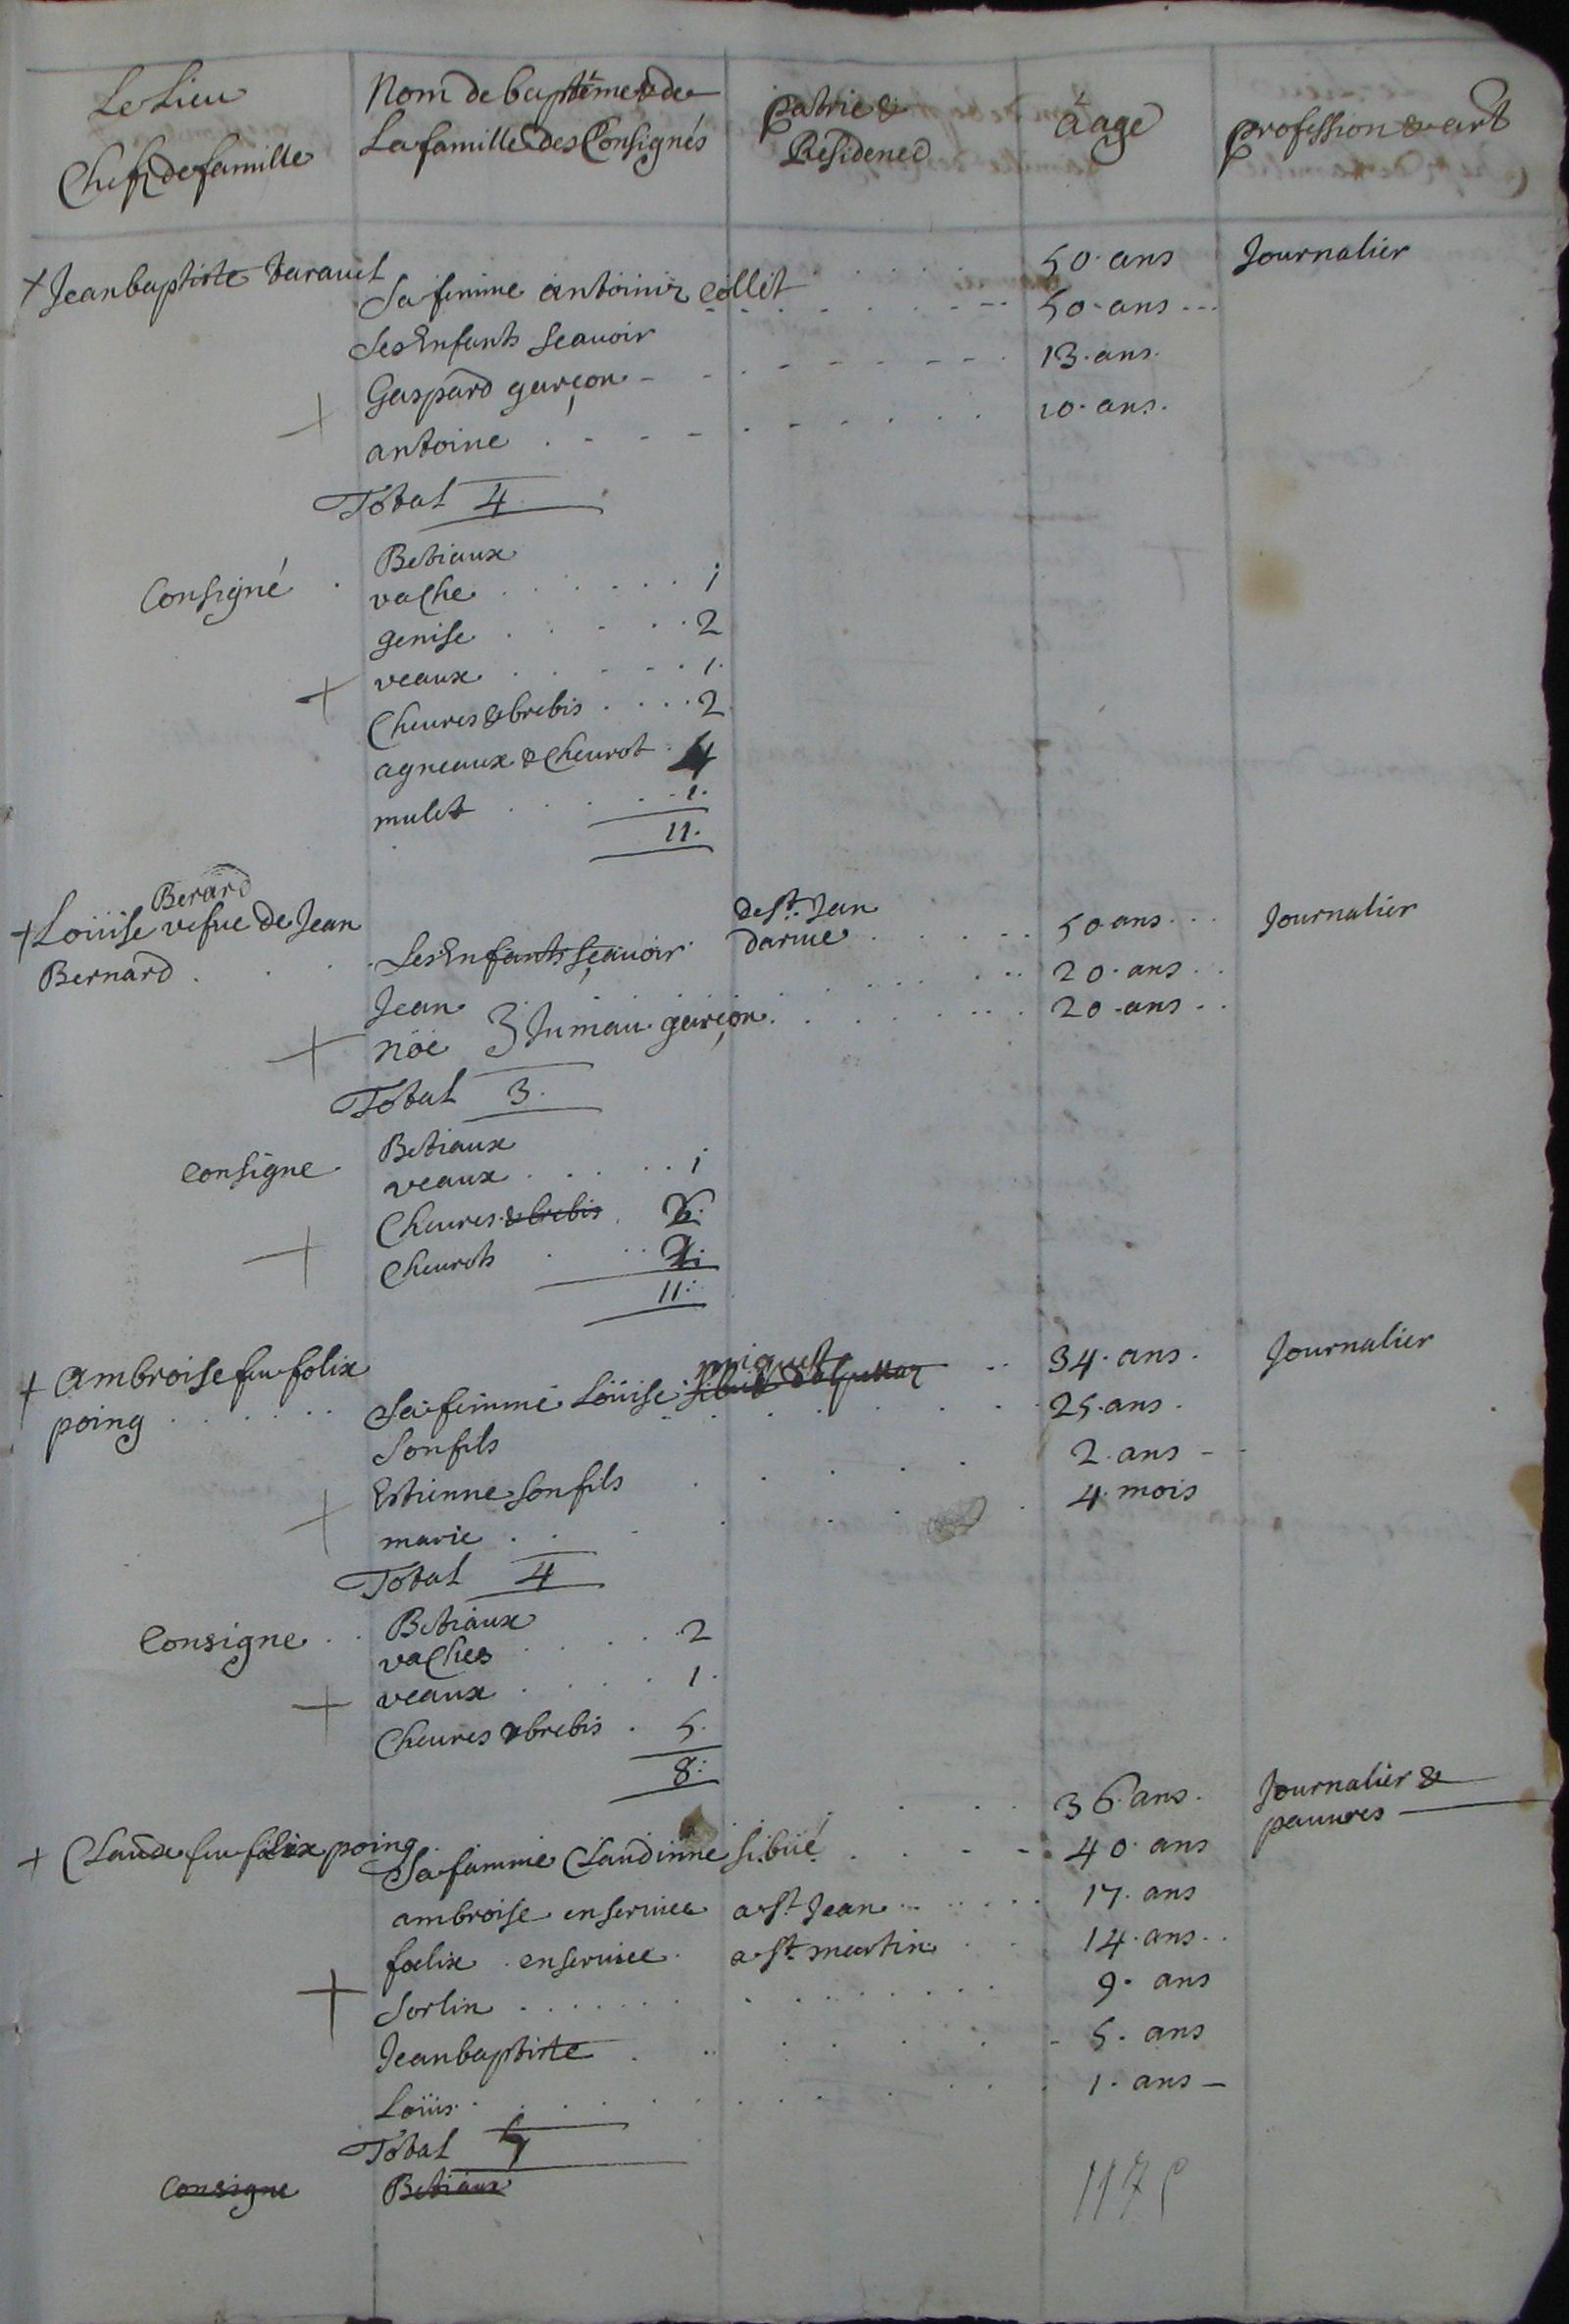 Le Lieu
Chefz de famille
Nom de baptéme & de
La famille des Consignés
patrie &
Residence
áage
profession & art
+ Jean baptiste Varauet 50. ans Journalier
Sa femme antoinne Collet 50. ans
Ses Enfants Scauoir
Gaspard garçon 13. ans.
antoine 10. ans.
Total 4
Consigné
Betiaux
vache 1
genise 2
veaux 1.
Cheures & brebis 2
agneaux & Cheurot 4
mulet 1.
11.
Berard
+ Loüise vefue de Jean
Bernard
de St. Jan
darue 50 ans Journalier
Ses Enfants Sçauoir
Jean 20. ans
nöé 3 Jumau garçon 20. ans
Total 3.
Consigne
Betiaux
veaux 1
Cheures & brebis
Cheurots
11.
+ ambroise feu folix
poing 34. ans. Journalier
Sa femme Loüise 25. ans.
Son fils
Estienne son fils 2. ans
marie 4. mois
Total 4
Consigne
Betiaux
vaches 2
veaux 1.
Cheures & brebis 5.
8.
+ Claude feu felix poing 36 ans. Journalier &
pauures
Sa famme Claudinne Sibüé 40. ans
ambroise en seruice a St. Jean 17. ans
foelix en seruice a St. martin 14. ans
Sorlin 9. ans
Jean baptiste 5. ans
Loüis 1. ans
Total 7
Consigne
Betiaux